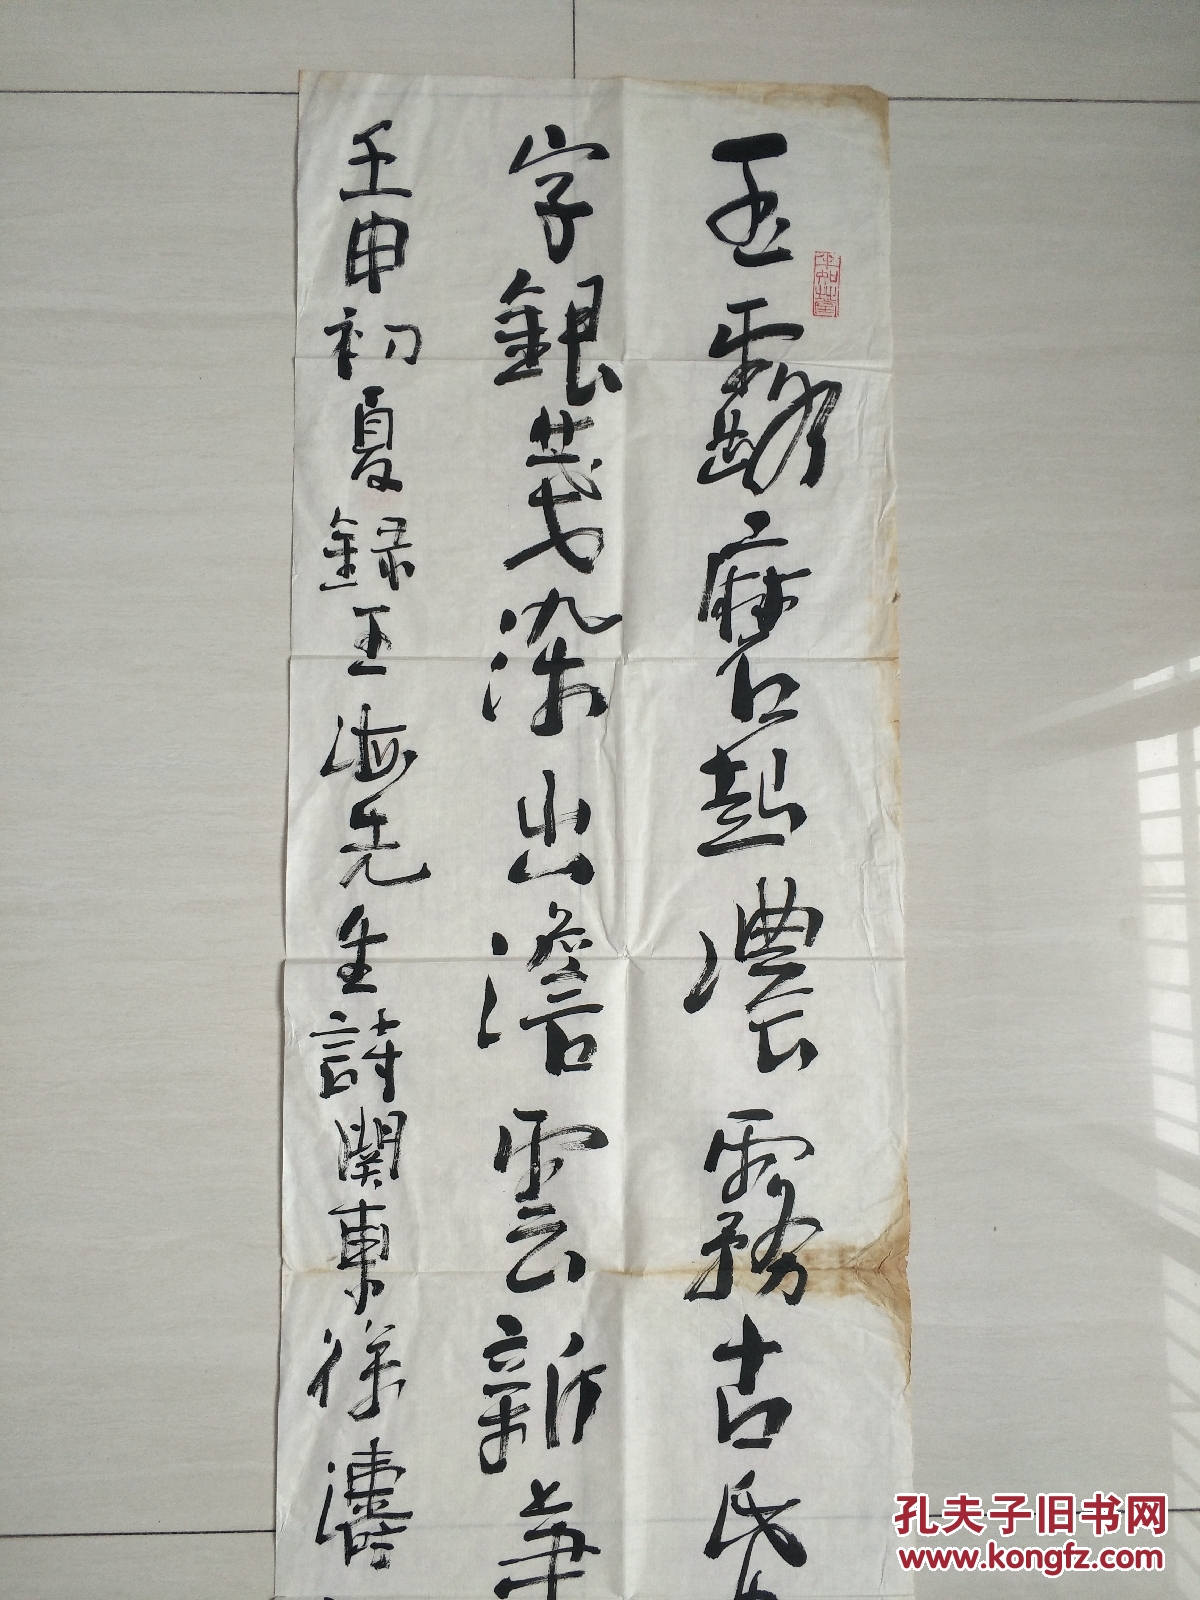 玉露磨起濃霧古民
字銀箋染出澹雲新
壬申初夏錄王海先生詩關東徐濤
孔夫子旧书网
www.kongfz.com